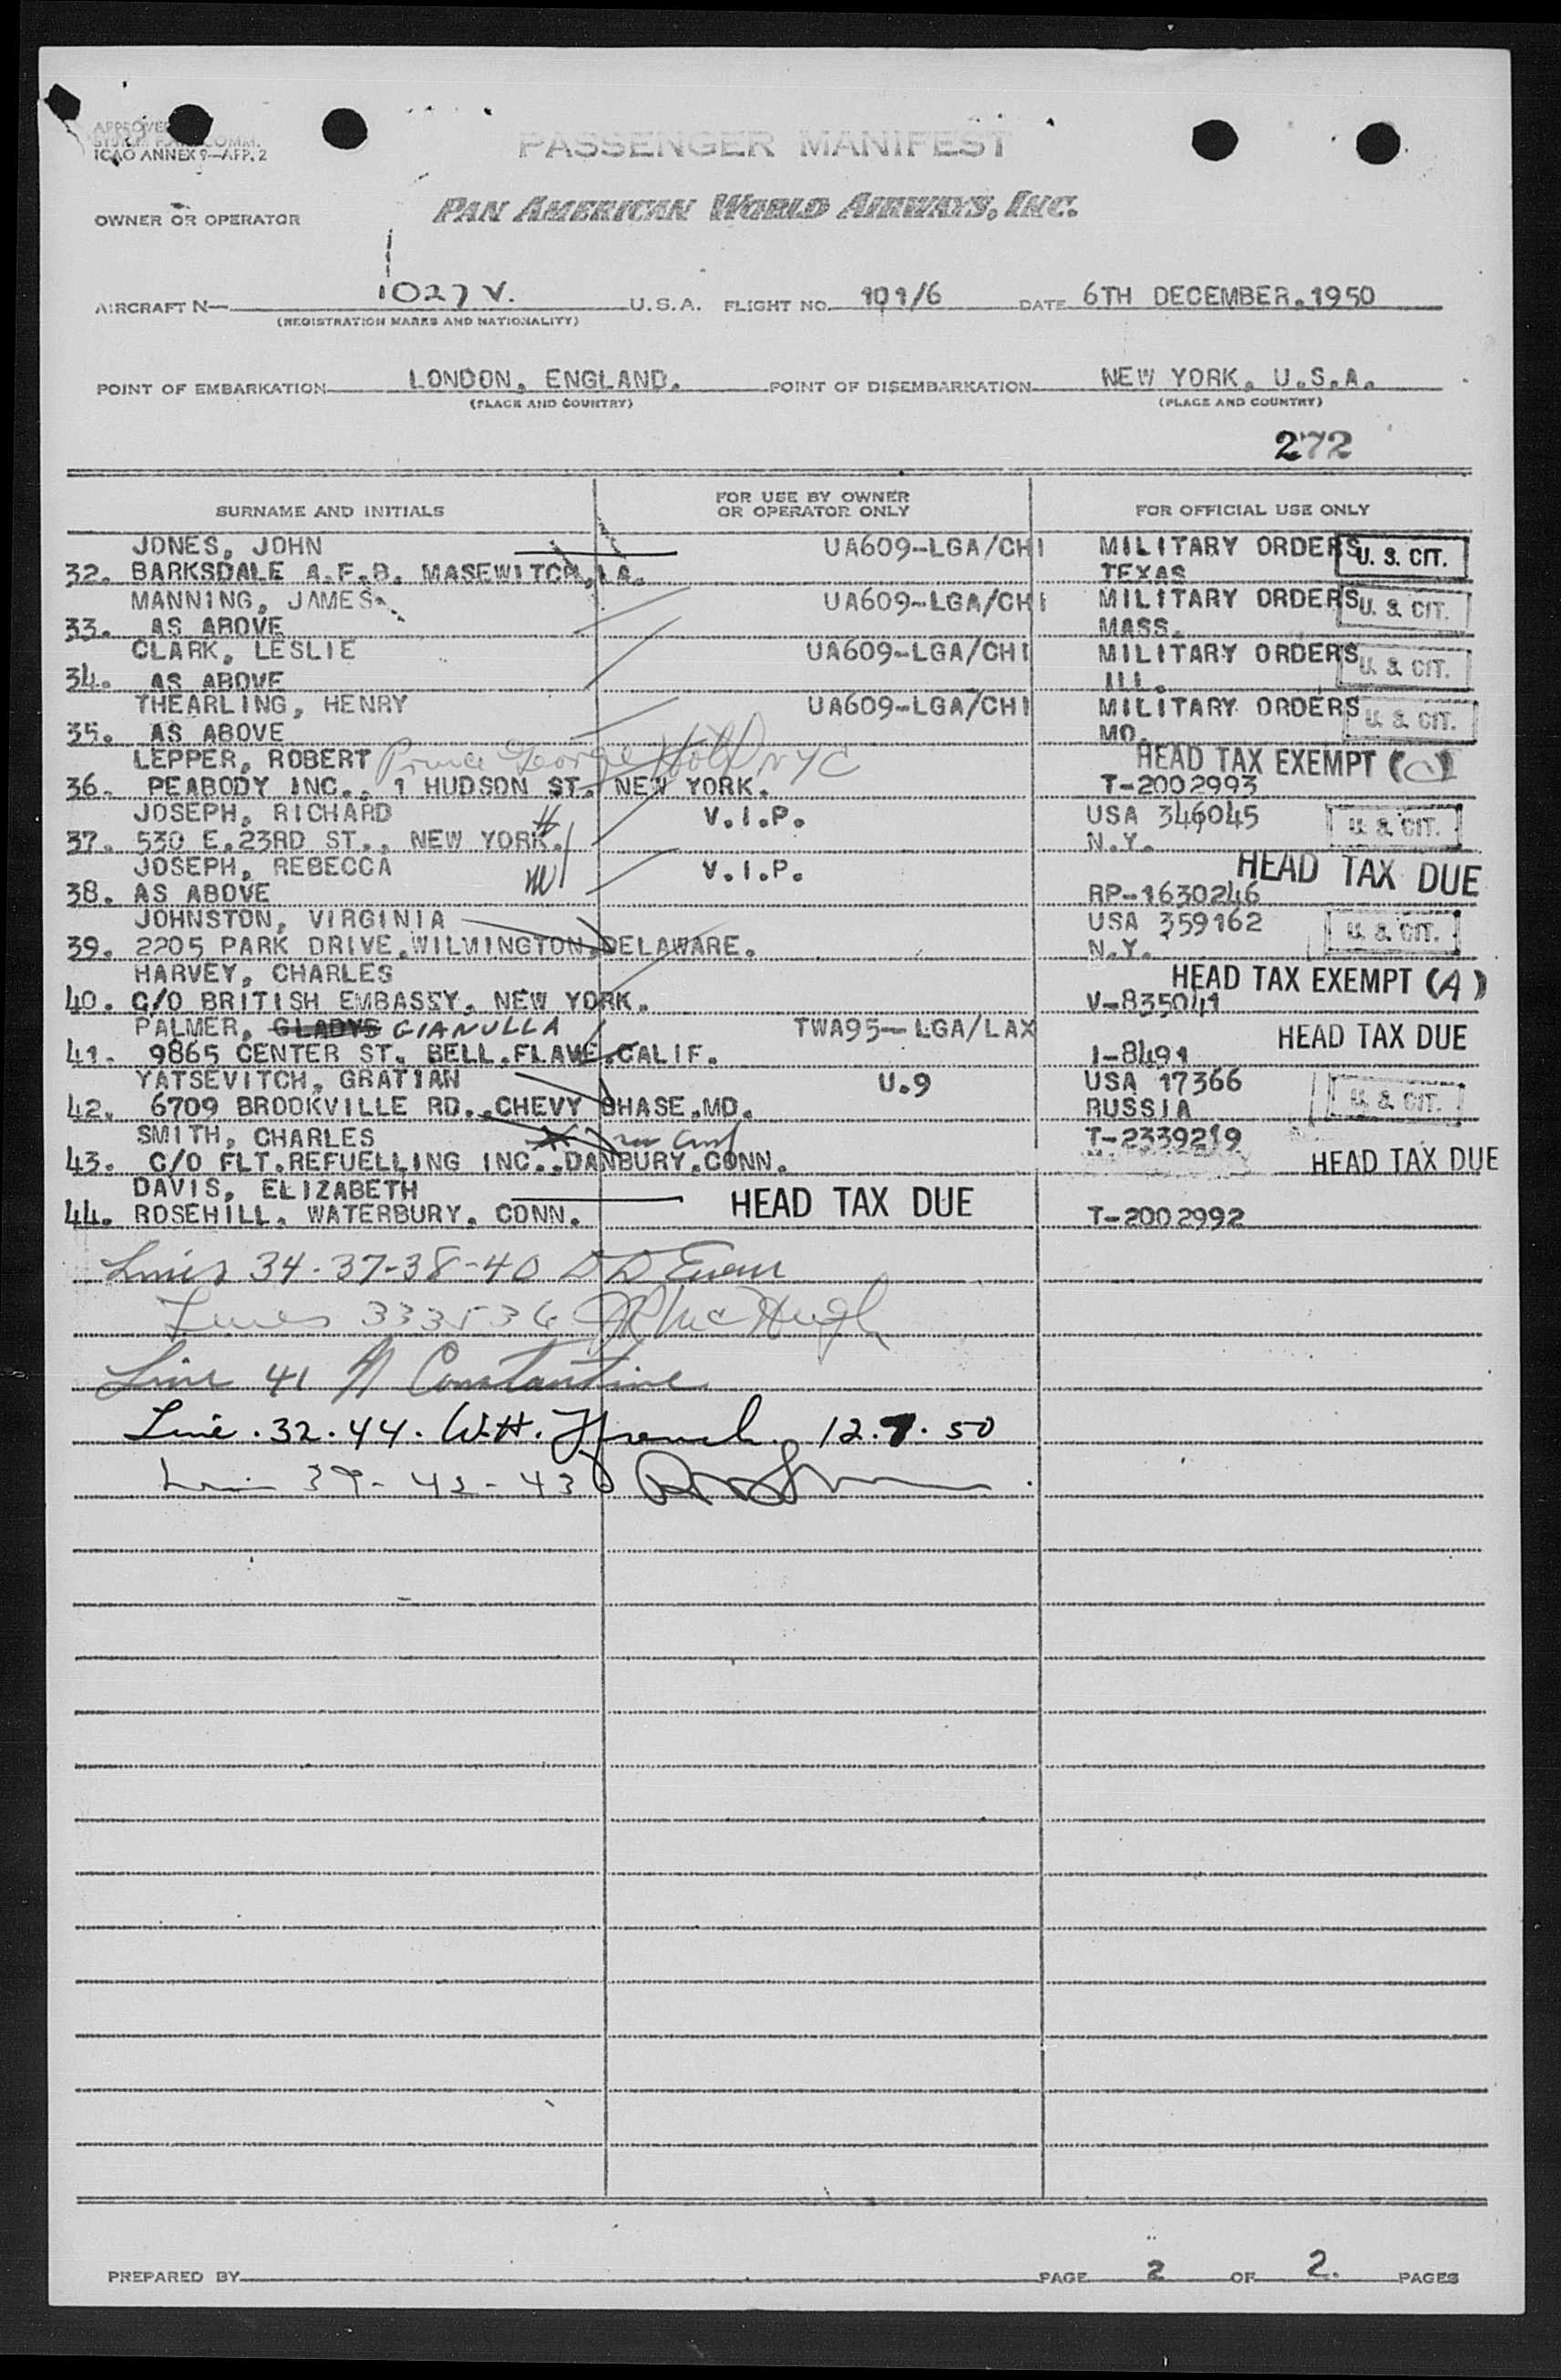 APPROVED
COMM.
ICAO ANNEX 9—APP. 2
PASSENGER MANIFEST
OWNER OR OPERATOR PAN AMERICAN WORLD AIRWAYS, INC.
AIRCRAFT N— 1027 V. U.S.A. FLIGHT NO. 101/6 DATE 6TH DECEMBER, 1950
(REGISTRATION MARKS AND NATIONALITY)
POINT OF EMBARKATION LONDON, ENGLAND. POINT OF DISEMBARKATION NEW YORK, U.S.A.
(PLACE AND COUNTRY) (PLACE AND COUNTRY)
272
SURNAME AND INITIALS FOR USE BY OWNER OR OPERATOR ONLY FOR OFFICIAL USE ONLY
JONES, JOHN UA609-LGA/CHI MILITARY ORDERS U. S. CIT.
32. BARKSDALE A.F.B. MASEWITCH, LA. TEXAS
MANNING, JAMES UA609-LGA/CHI MILITARY ORDERS U. S. CIT.
33. AS ABOVE MASS.
CLARK, LESLIE UA609-LGA/CHI MILITARY ORDERS U. S. CIT.
34. AS ABOVE ILL.
THEARLING, HENRY UA609-LGA/CHI MILITARY ORDERS U. S. CIT.
35. AS ABOVE MO.
LEPPER, ROBERT Prince George Hotel NYC HEAD TAX EXEMPT (C)
36. PEABODY INC., 1 HUDSON ST. NEW YORK. T-2002993
JOSEPH, RICHARD V.I.P. USA 346045 U. S. CIT.
37. 530 E.23RD ST., NEW YORK. N.Y.
JOSEPH, REBECCA V.I.P. HEAD TAX DUE
38. AS ABOVE RP-1630246
JOHNSTON, VIRGINIA USA 359162 U. S. CIT.
39. 2205 PARK DRIVE, WILMINGTON, DELAWARE. N.Y.
HARVEY, CHARLES HEAD TAX EXEMPT (A)
40. C/O BRITISH EMBASSY, NEW YORK. V-835041
PALMER, GLADYS GIANULLA TWA95-LGA/LAX HEAD TAX DUE
41. 9865 CENTER ST. BELL.FLAWE.CALIF. I-8491
YATSEVITCH, GRATIAN U.9 USA 17366 U. S. CIT.
42. 6709 BROOKVILLE RD., CHEVY CHASE, MD. RUSSIA
SMITH, CHARLES T-2339219
43. C/O FLT.REFUELLING INC., DANBURY, CONN. HEAD TAX DUE
DAVIS, ELIZABETH HEAD TAX DUE
44. ROSEHILL, WATERBURY, CONN. T-2002992
Lines 34-37-38-40 D D Evans
Lines 33 35 36 JR McHugh
Line 41 A Constantine
Line .32.44. W.H. Ffrench 12.7.50
Line 39-42-43
PREPARED BY PAGE 2 OF 2. PAGES